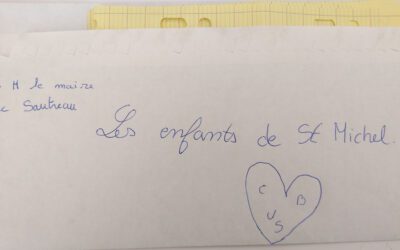 M le maire
Sautreau
Les enfants de St Michel.
C B
U S